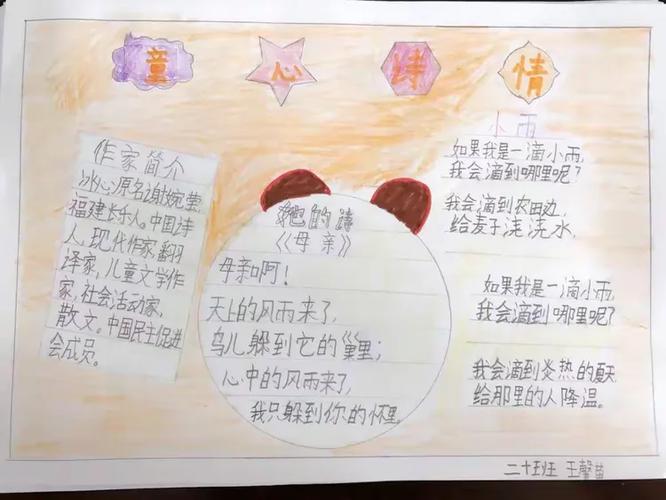 童心诗情
作家简介
冰心原名谢婉莹,
福建长乐人。中国诗
人,现代作家,翻
译家,儿童文学作
家,社会活动家,
散文。中国民主促进
会成员。
她的诗
《母亲》
母亲啊!
天上的风雨来了,
鸟儿躲到它的巢里;
心中的风雨来了,
我只躲到你的怀里。
小雨
如果我是一滴小雨,
我会滴到哪里呢?
我会滴到农田边,
给麦子浇浇水,
如果我是一滴小雨,
我会滴到哪里呢?
我会滴到炎热的夏天
给那里的人降温。
二十班 王馨苗